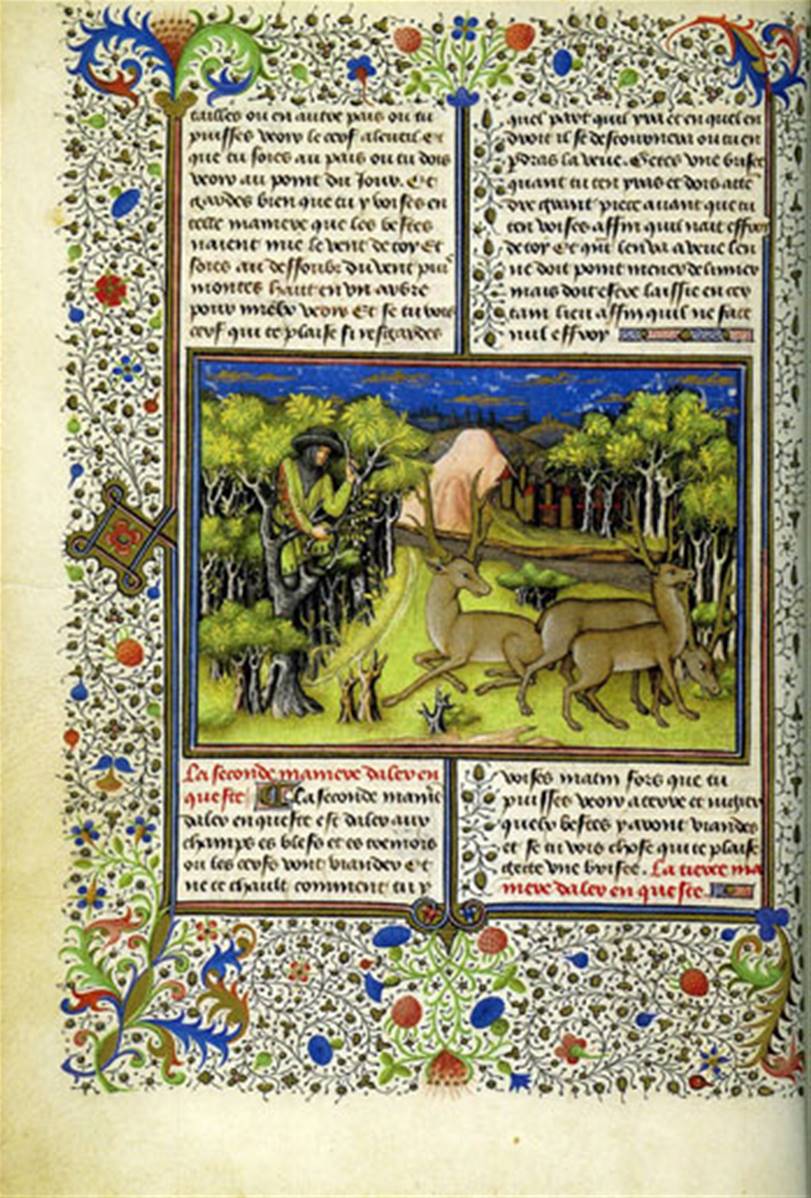 tailles ou en autre pais ou tu
puisses veoir le cerf a lueil Et
que tu soies au pais ou tu dois
veoir au point du jour. Et
gardes bien que tu y voises en
telle maniere que les bestes
naient mie le vent de toy Et
soies au dessoubz du vent puis
montes hault en un arbre
pour mieulx veoir Et se tu vois
cerf qui te plaise si resgardes
quel part quil yra et en quel en
droit il se destournera ou tu en
perdras la veue. Gectes une brisee
quant tu ten yras et dois atte
dre grant piece avant que tu
ten voises affin quil nait effroy
de toy Et qui len va a veue len
ne doit point mener de limier
mais doit estre laissie en cer
tain lieu affin quil ne face
nul effroy
La seconde maniere daler en
queste La seconde manie
daler en queste est daler aux
champs es blefs et es
ou les cerfs vont viander Et
ne te chault comment tu y
voises matin fors que tu
puisses veoir a terre et jugier
quelz bestes y auront viandes
et se tu vois chose qui te plaise
gecte une brisee. La tierce ma
niere daler en queste.